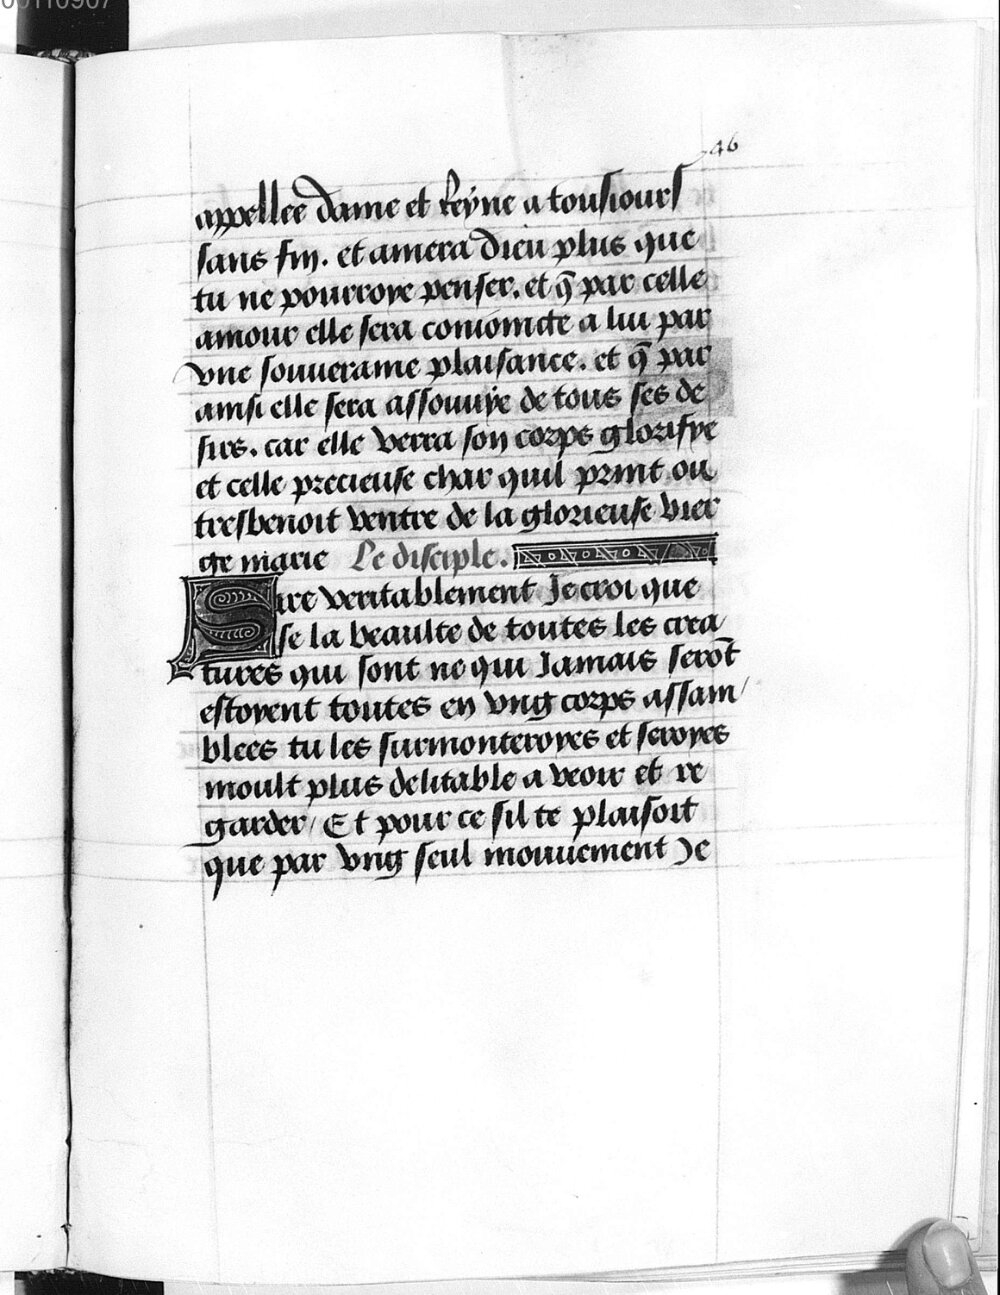 00110907
46
appellee dame et Reyne a tousiours
sans fin. et amera dieu plus que
tu ne pourroye penser. et q̄ par celle
amour elle sera conioincte a lui par
vne souueraine plaisance. et q̄ par
ainsi elle sera assouuye de tous ses de
sirs. car elle verra son corps glorifye
et celle precieuse char quil print ou
tresbenoit ventre de la glorieuse vier
ge marie Le disciple.
Sire veritablement Je croi que
se la beaulte de toutes les crea
tures qui sont ne qui Jamais serōt
estoyent toutes en vng corps assam/
blees tu les surmonteroyes et seroyes
moult plus delitable a veoir et re
garder/ Et pour ce sil te plaisoit
que par vng seul mouuement Je